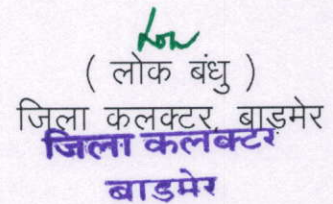 ( लोक बंधु )
जिला कलक्टर, बाड़मेर
जिला कलक्टर
बाडमेर